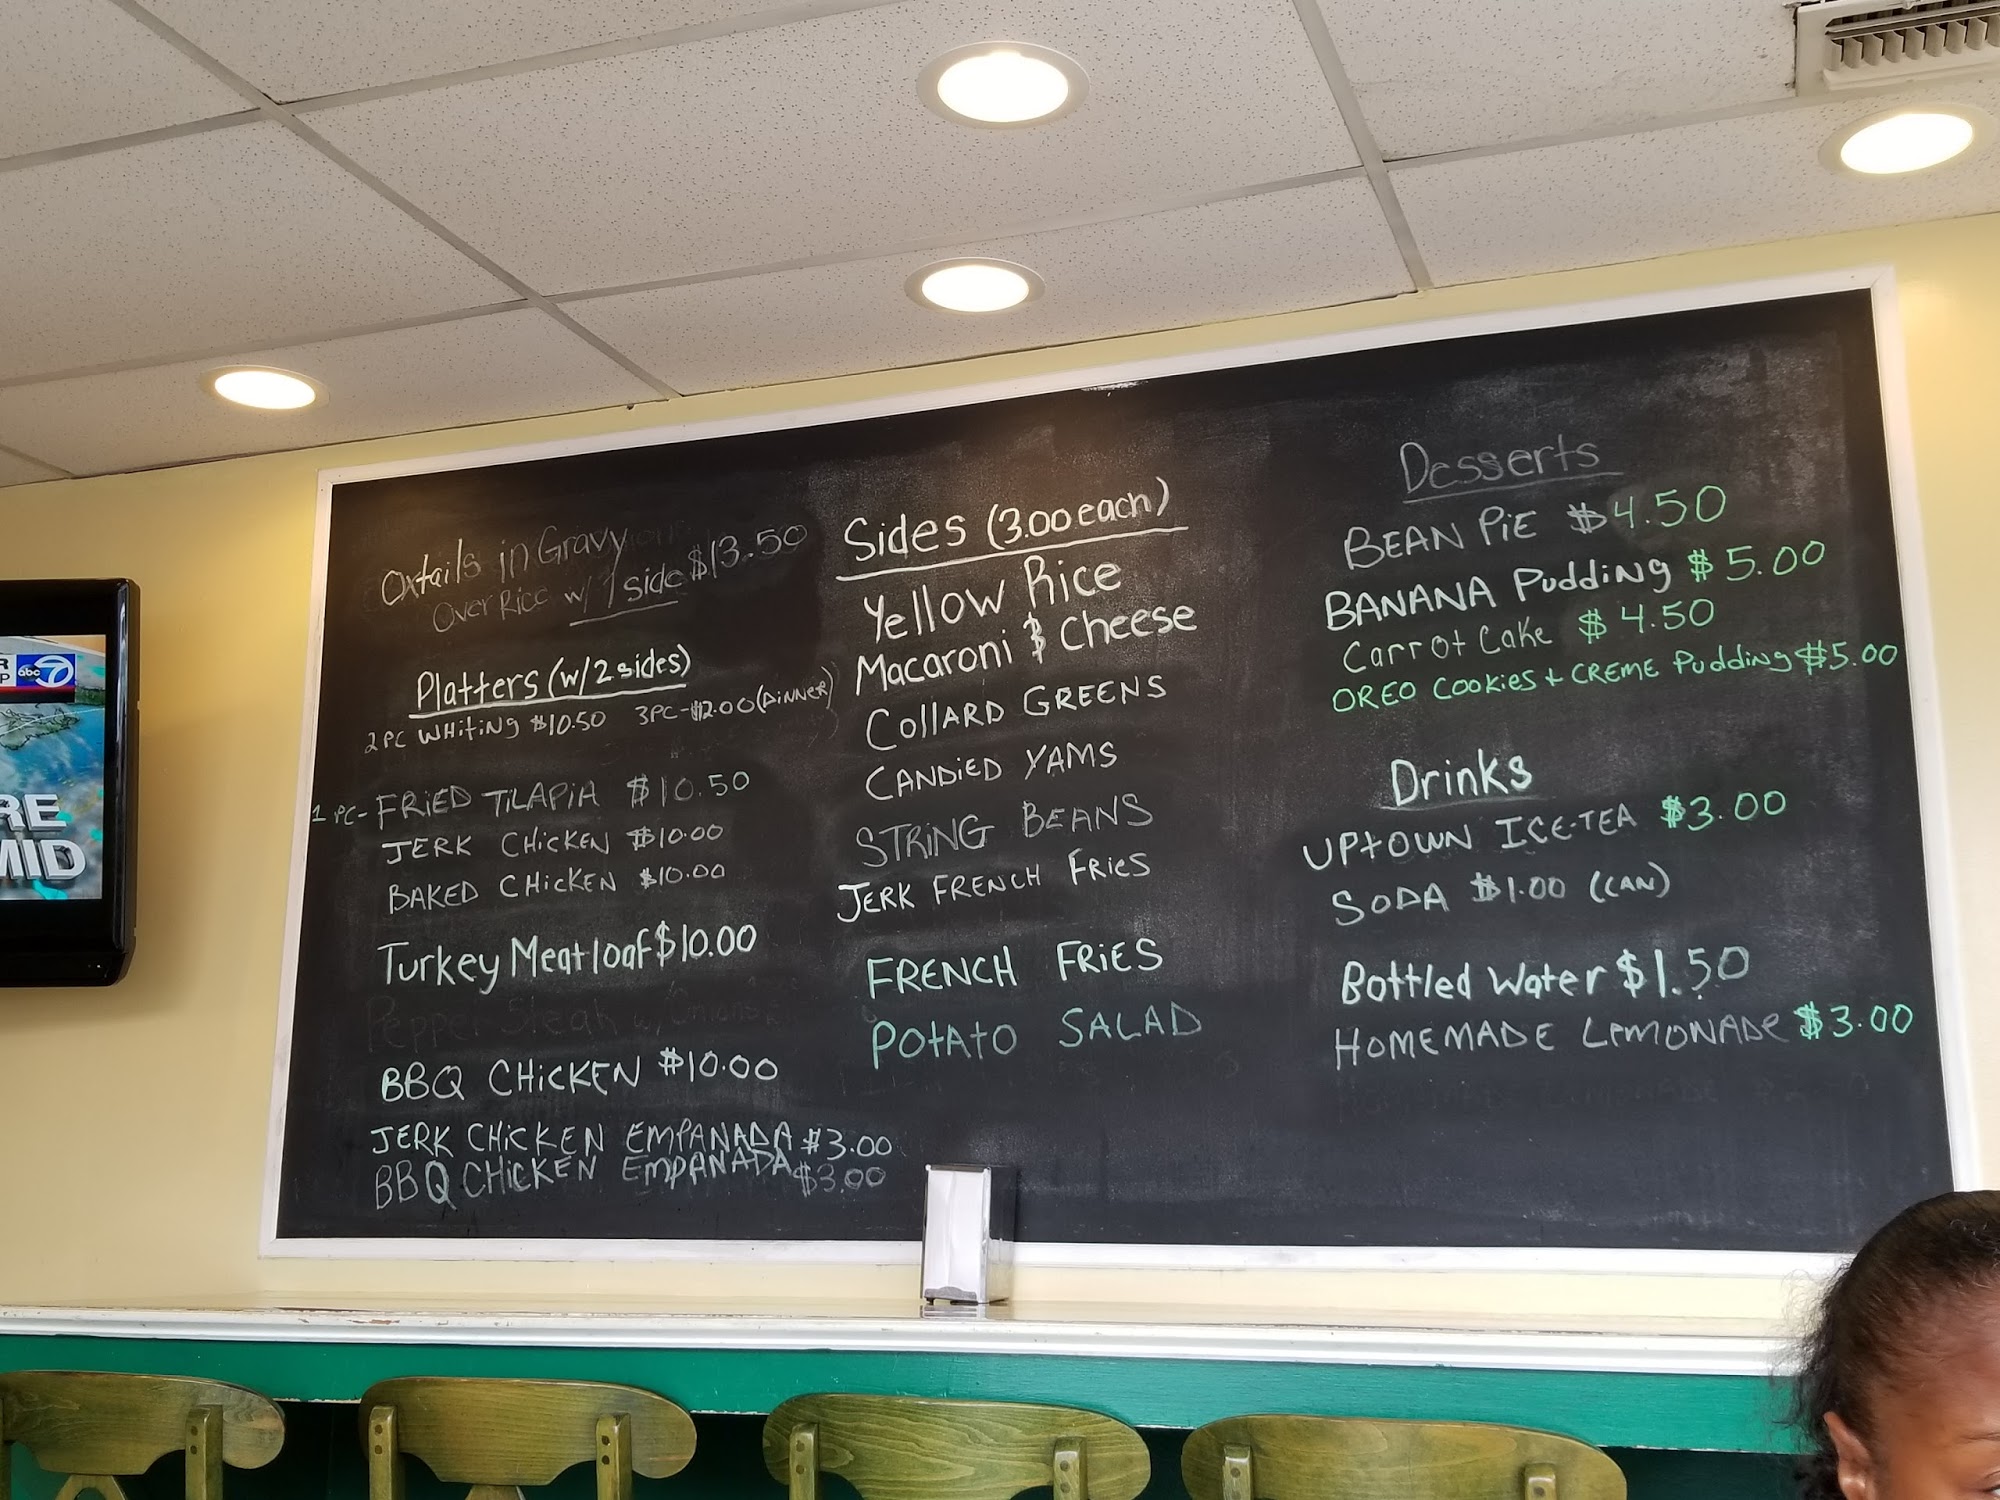 Oxtails in Gravy
Over Rice w/ 1 side $13.50
Platters (w/2 sides)
2 PC WHITING $10.50 3PC-$12.00 (DINNER)
1 PC- FRIED TILAPIA $10.50
JERK CHICKEN $10.00
BAKED CHICKEN $10.00
Turkey Meatloaf $10.00
Pepper Steak w/ Onions
BBQ CHICKEN $10.00
JERK CHICKEN EMPANADA $3.00
BBQ CHICKEN EMPANADA $3.00
Sides (3.00 each)
Yellow Rice
Macaroni & Cheese
COLLARD GREENS
CANDIED YAMS
STRING BEANS
JERK FRENCH FRIES
FRENCH FRIES
POTATO SALAD
Desserts
BEAN PIE $4.50
BANANA Pudding $5.00
Carrot Cake $4.50
OREO COOKIES + CREME Pudding $5.00
Drinks
UPTOWN ICE-TEA $3.00
SODA $1.00 (CAN)
Bottled Water $1.50
HOMEMADE LEMONADE $3.00
abc 7
RE
MID